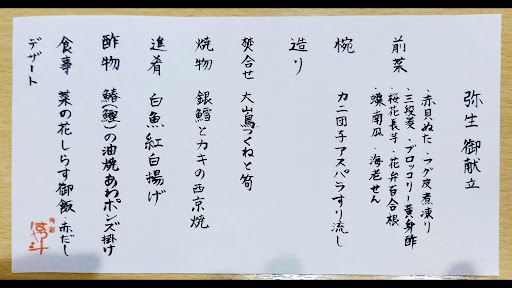 弥生 御献立
前菜
・赤貝ぬた・フグ皮煮凍り
・三段菱・ブロッコリー黄身酢
・桜花長芋・花弁百合根
・蝶南瓜・海老せん
椀 カニ団子アスパラすり流し
造り
焚合せ 大山鳥つくねと筍
焼物 銀鱈とカキの西京焼
進肴 白魚紅白揚げ
酢物 鰆(鰹)の油焼あわポンズ掛け
食事 菜の花しらす御飯・赤だし
デザート